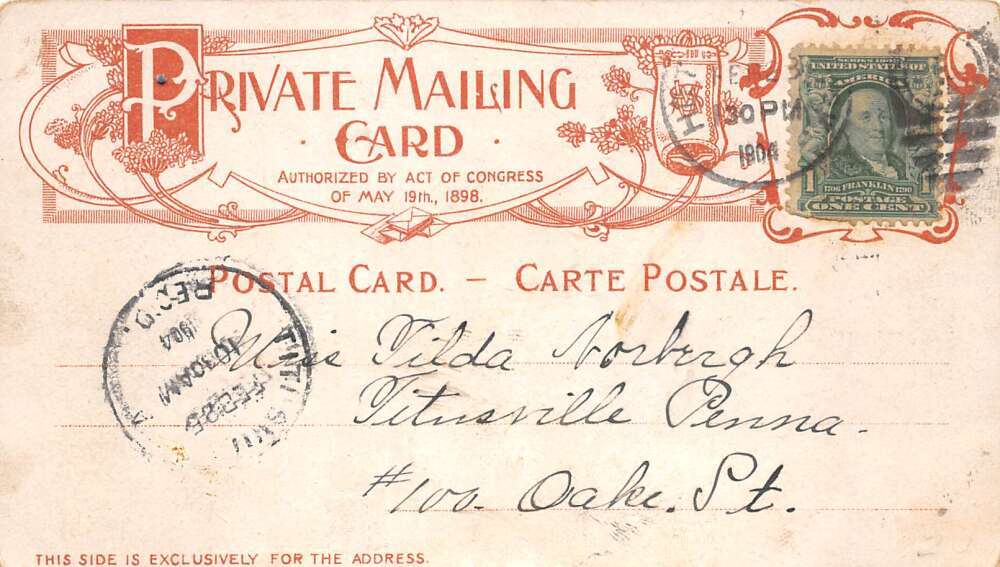 PRIVATE MAILING
CARD
AUTHORIZED BY ACT OF CONGRESS
OF MAY 19th., 1898.
130 PM
1904
SERIES 1902
UNITED STATES OF
AMERICA
1 1706 FRANKLIN 1790 1
POSTAGE
ONE CENT
POSTAL CARD. – CARTE POSTALE.
REC'D.
1904
1030AM
FEB 25
Miss Tilda Norbergh
Titusville Penna.
#100. Oake. St.
THIS SIDE IS EXCLUSIVELY FOR THE ADDRESS.